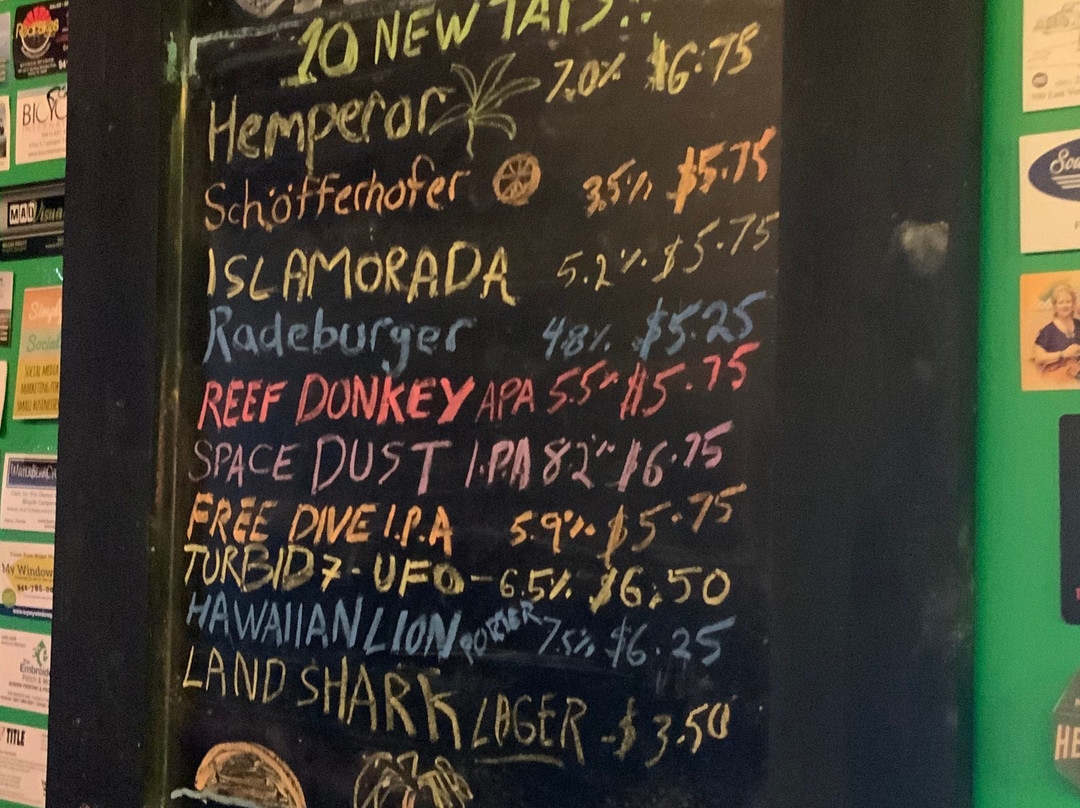 10 NEW TAPS!!
Hemperor 7.0% $6.75
Schöfferhofer 3.5% $5.75
ISLAMORADA 5.2% $5.75
Radeburger 4.8% $5.25
REEF DONKEY APA 5.5% $5.75
SPACE DUST I.P.A 8.2% $6.75
FREE DIVE I.P.A 5.9% $5.75
TURBID 7 - UFO - 6.5% $6.50
HAWAIIAN LION PORTER 7.5% $6.25
LAND SHARK LAGER - $3.50
MAD Visual
Simply
Social
SOCIAL MEDIA
MARKETING FOR
SMALL BUSINESSES
My Window
Embroid
TITLE
HE